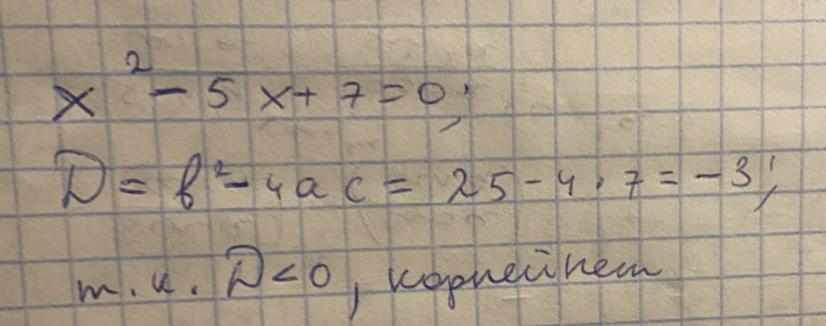 x² - 5x + 7 = 0;
D = b² - 4ac = 25 - 4 · 7 = -3;
т.к. D < 0, корней нет